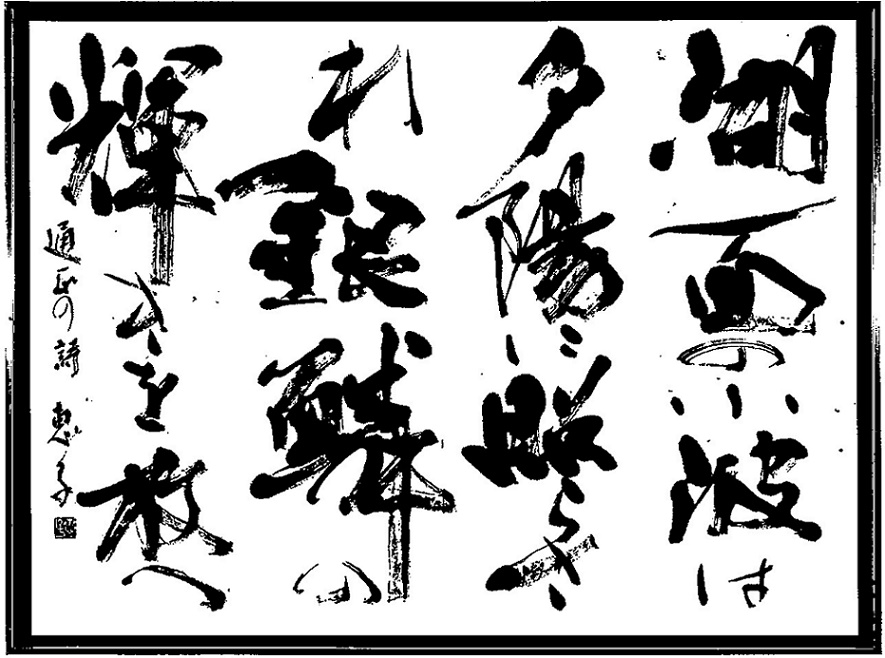 湖面の小波は
夕陽に照らさ
れ銀鱗の
輝きを放つ
通正の詩 恵子